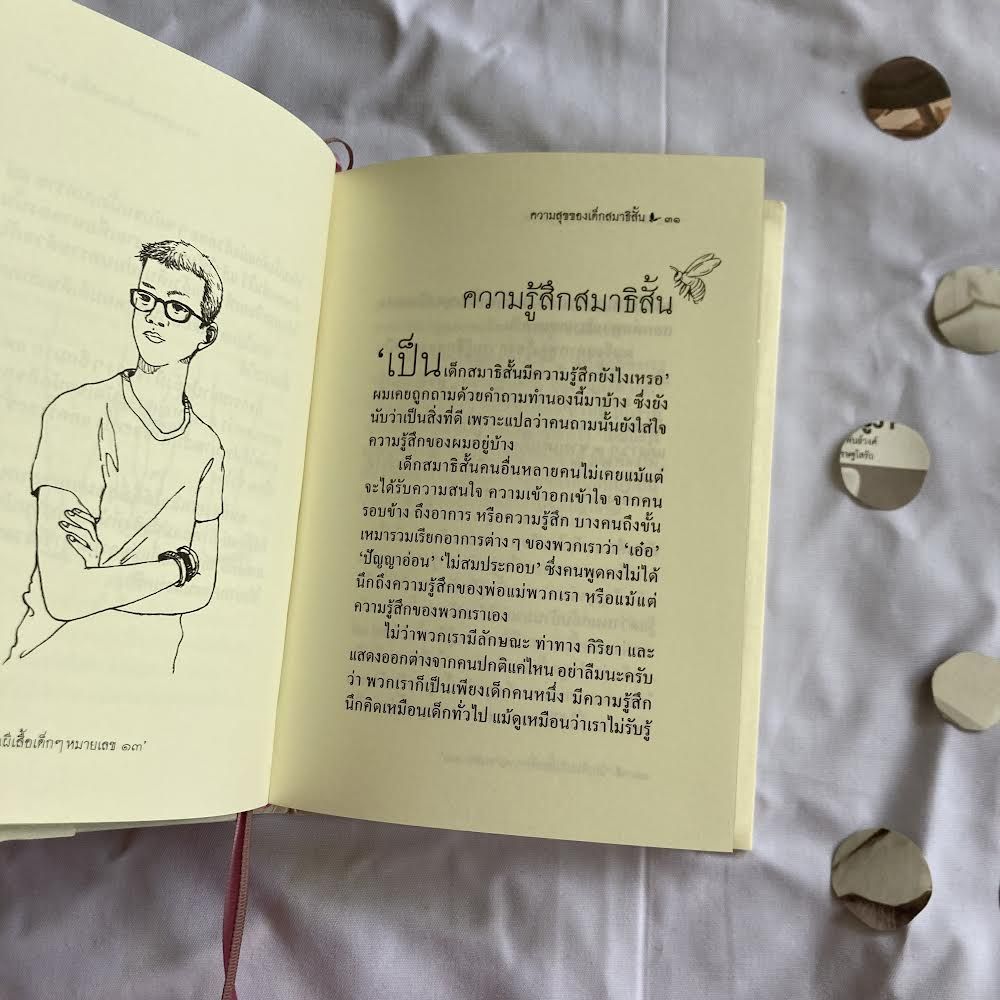 ผีเสื้อเด็กๆ หมายเลข ๑๓'
ความสุขของเด็กสมาธิสั้น ๓๑
ความรู้สึกสมาธิสั้น
‘เป็นเด็กสมาธิสั้นมีความรู้สึกยังไงเหรอ’
ผมเคยถูกถามด้วยคำถามทำนองนี้มาบ้าง ซึ่งยัง
นับว่าเป็นสิ่งที่ดี เพราะแปลว่าคนถามนั้นยังใส่ใจ
ความรู้สึกของผมอยู่บ้าง
เด็กสมาธิสั้นคนอื่นหลายคนไม่เคยแม้แต่
จะได้รับความสนใจ ความเข้าอกเข้าใจ จากคน
รอบข้าง ถึงอาการ หรือความรู้สึก บางคนถึงขั้น
เหมารวมเรียกอาการต่างๆ ของพวกเราว่า ‘เอ๋อ’
‘ปัญญาอ่อน’ ‘ไม่สมประกอบ’ ซึ่งคนพูดคงไม่ได้
นึกถึงความรู้สึกของพ่อแม่พวกเรา หรือแม้แต่
ความรู้สึกของพวกเราเอง
ไม่ว่าพวกเรามีลักษณะ ท่าทาง กิริยา และ
แสดงออกต่างจากคนปกติแค่ไหน อย่าลืมนะครับ
ว่า พวกเราก็เป็นเพียงเด็กคนหนึ่ง มีความรู้สึก
นึกคิดเหมือนเด็กทั่วไป แม้ดูเหมือนว่าเราไม่รับรู้